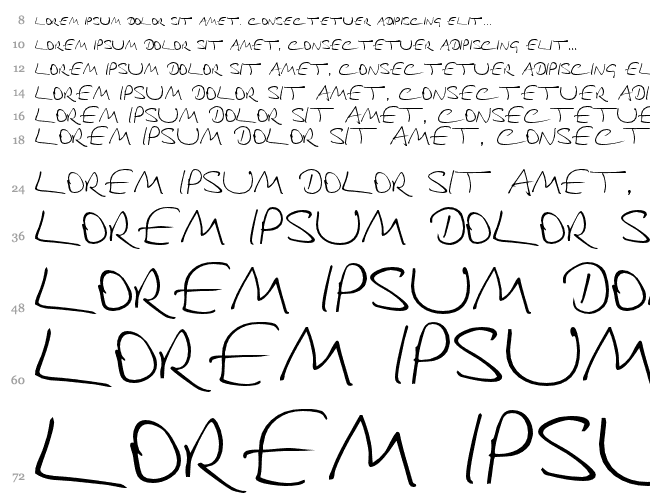 8 LOREM IPSUM DOLOR SIT AMET, CONSECTETUER ADIPISCING ELIT...
10 LOREM IPSUM DOLOR SIT AMET, CONSECTETUER ADIPISCING ELIT...
12 LOREM IPSUM DOLOR SIT AMET, CONSECTETUER ADIPISCING EL
14 LOREM IPSUM DOLOR SIT AMET, CONSECTETUER ADI
16 LOREM IPSUM DOLOR SIT AMET, CONSECTETUE
18 LOREM IPSUM DOLOR SIT AMET, CONSECT
24 LOREM IPSUM DOLOR SIT AMET,
36 LOREM IPSUM DOLOR S
48 LOREM IPSUM DO
60 LOREM IPSUM
72 LOREM IPSU